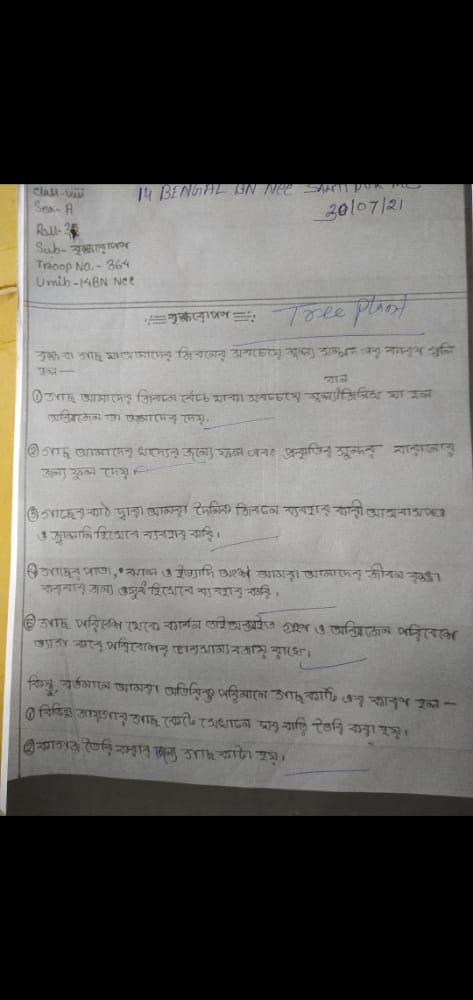 Class-viii
14 BENGAL BN NCC
Sec- A
30/07/21
Roll-
Sub- বৃক্ষরোপণ
Troop NO. - 364
Umib -14BN Ncc
বৃক্ষরোপণ
Tree Plant
বৃক্ষ বা গাছ আমাদের জিবনের সবচেয়ে মূল্য সম্পদ এর কারণ গুলি
হল —
বান
① গাছ আমাদের জিবনে বেঁচে থাকা সবচেয়ে মূল্য জিনিস যা হল
অক্সিজেন তা আমাদের দেয়।
② গাছ আমাদের খাদ্যের জন্যে ফল এবং প্রকৃতির সুন্দর
জন্য ফুল দেয়।
③ গাছের কাঠ দ্বারা আমরা দৈনিক জিবনে ব্যবহার কারী আসবাসপত্র
ও জ্বালানি হিসেবে ব্যবহার করি।
④ গাছের পাতা, ছাল ও ইত্যাদি অংশ আমরা আমাদের জীবন রক্ষা
করবার জন্য ওষুধ হিসেবে ব্যবহার করি।
⑤ গাছ পরিবেশ থেকে কার্বন ডাইঅক্সাইড গ্রহণ ও অক্সিজেন পরিবেশে
ত্যাগ করে পরিবেশের ভারসাম্য বজায় রাখে।
কিন্তু, বর্তমানে আমরা অতিরিক্ত পরিমানে গাছ কাটি এর কারণ হল —
① বিভিন্ন জায়গার গাছ কেটে সেখানে ঘর বাড়ি তৈরি করা হয়।
② কাগজ তৈরি করার জন্য গাছ কাটা হয়।